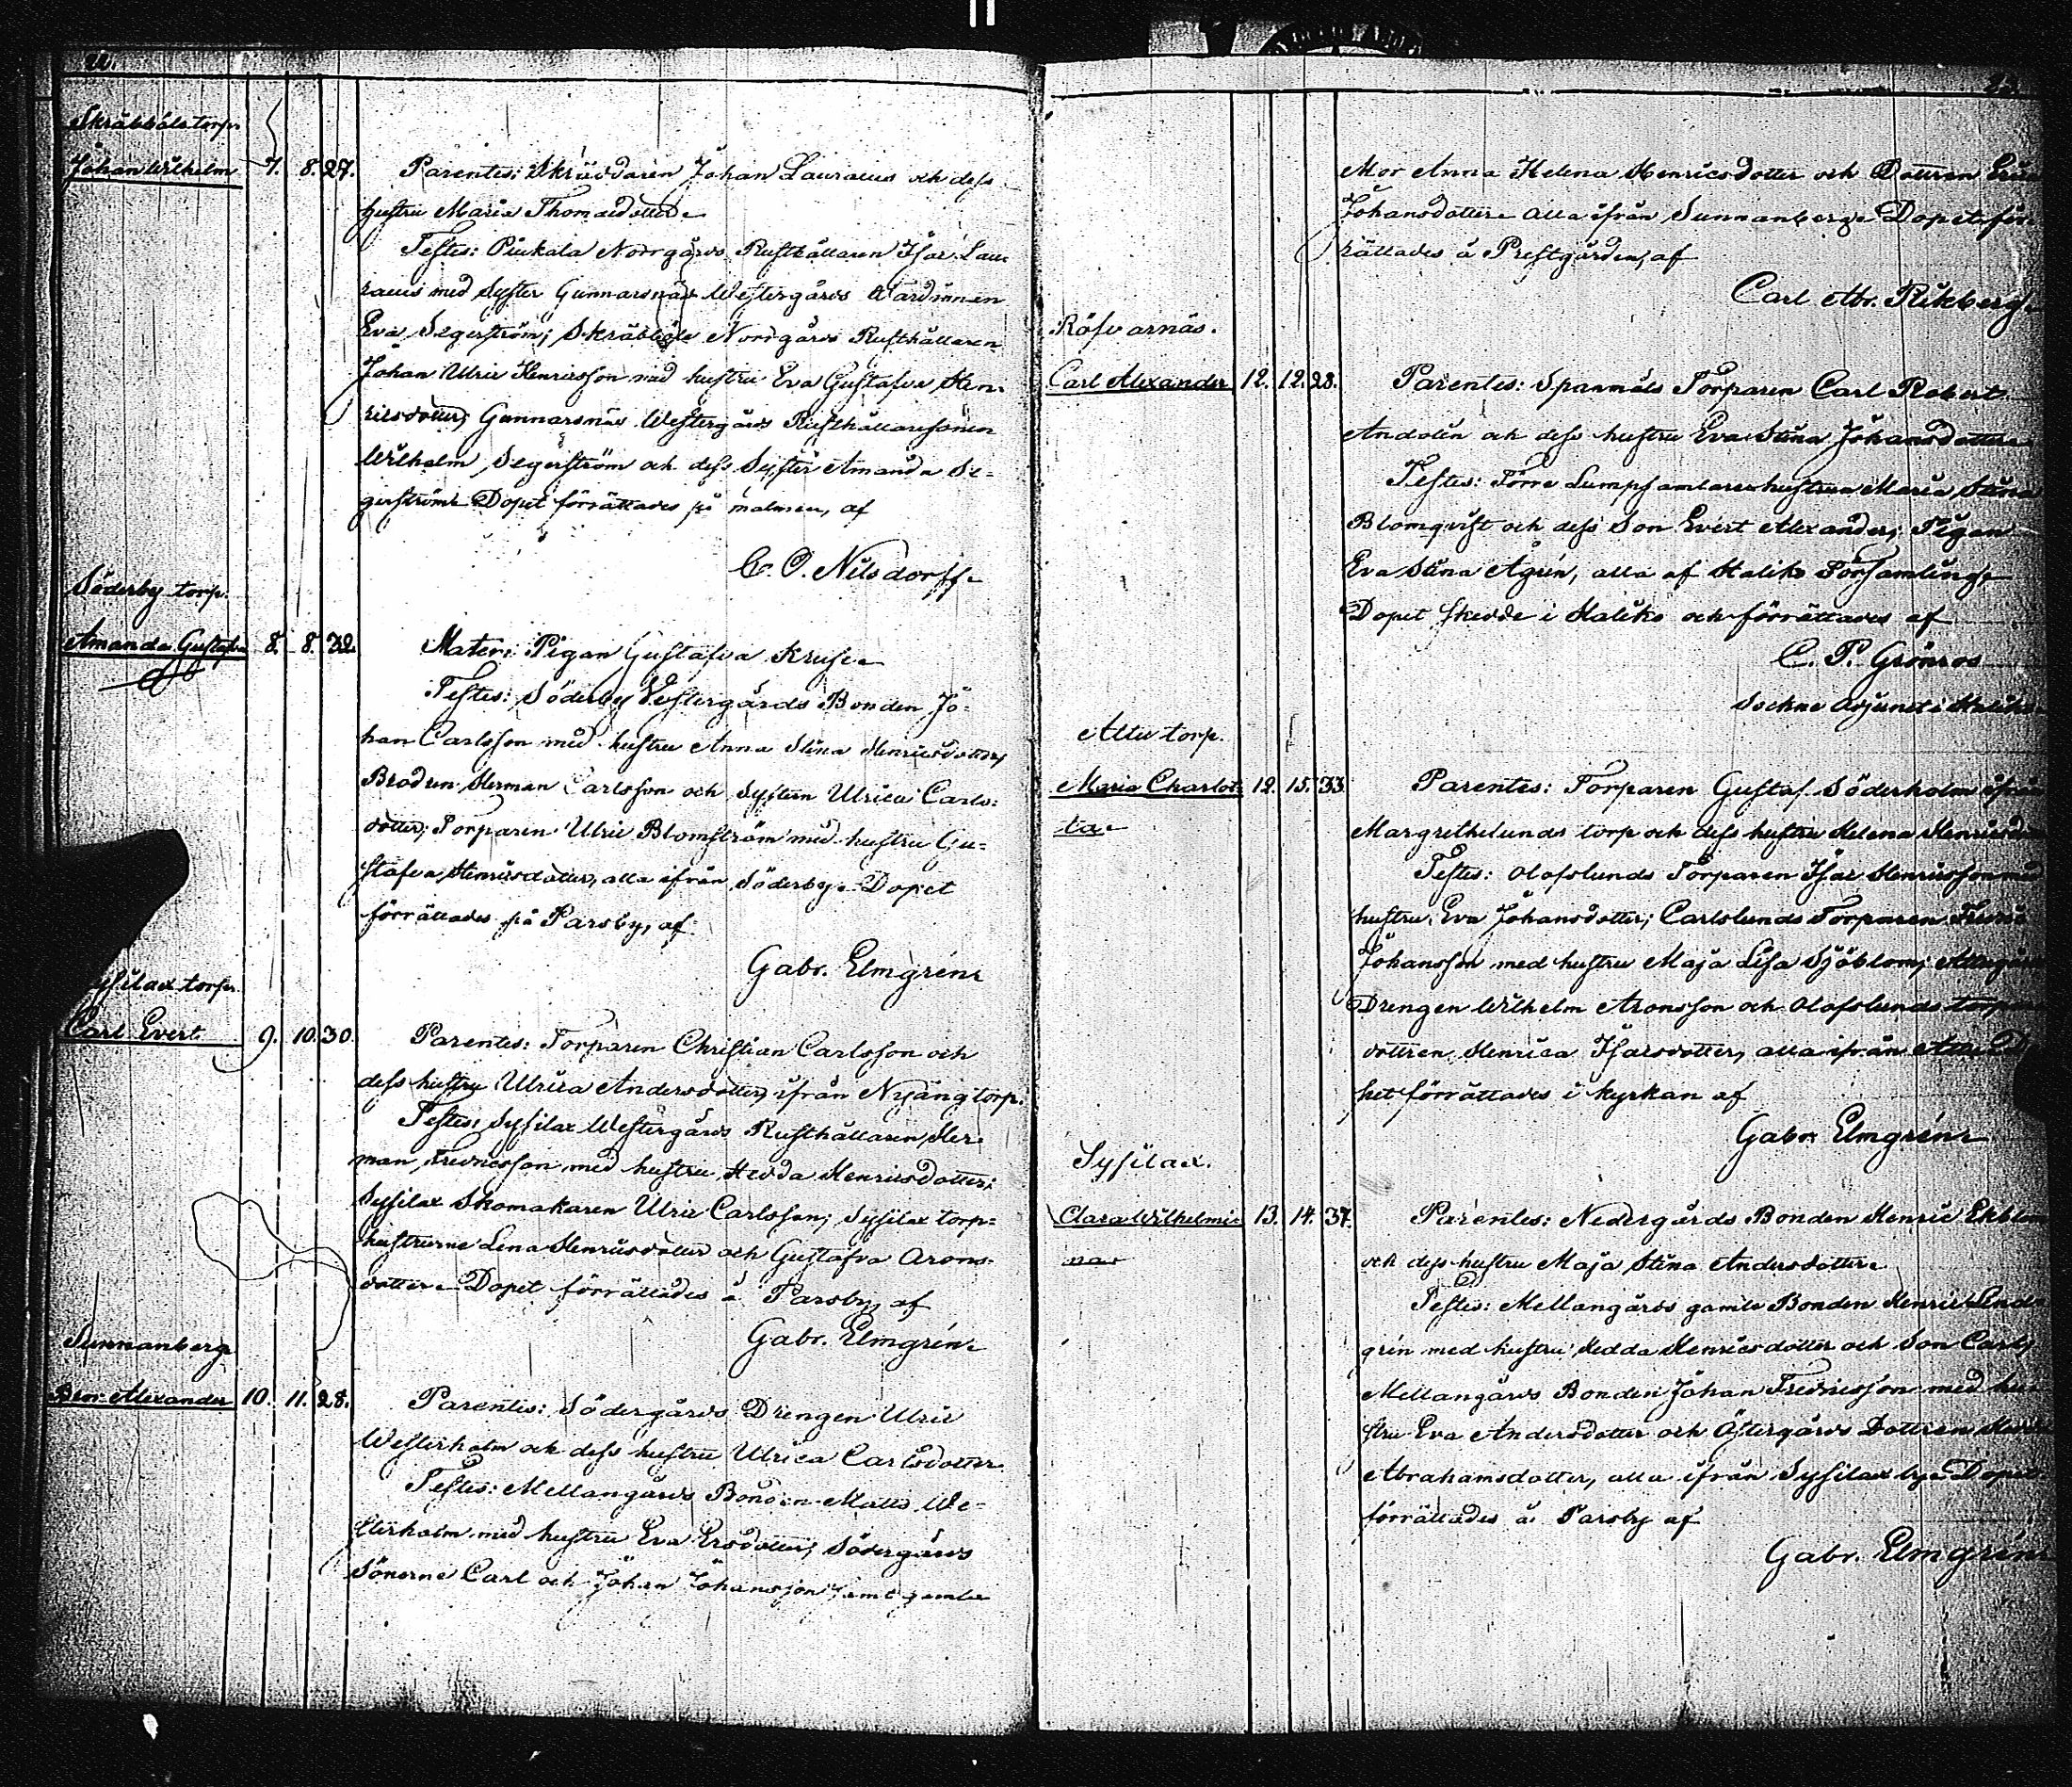 22.
Skräbböle torp.
Johan Wilhelm 7. 8. 27. Parentes: Skräddaren Johan Lauraeus och dess
hustru Maria Thomasdotter
Testes: Piukala Norrgårds Rusthållaren Isac Lau-
raeus med Syster Gunnarsnäs Westergårds Wärdinnan
Eva Segerström; Skräbböle Norrgårds Rusthållaren
Johan Ulric Henricsson med hustru Eva Gustafva Hen-
ricsdotter; Gunnarsnäs Westergårds Rusthållaresonen
Wilhelm Segerström och dess Syster Amanda Se-
gerström. Dopet förrättades på malmen, af
C. O. Nilsdorff.
Söderby torp.
Amanda Gustafva 8. 8. 32. Mater: Pigan Gustafva Kruse
Testes: Söderby Vestergårds Bonden Jo-
han Carlsson med hustru Anna Stina Henricsdotter,
Brodren Herman Carlsson och Systren Ulrica Carls-
dotter; Torparen Ulric Blomström med hustru Gu-
stafva Henricsdotter, alla ifrån Söderby. Dopet
förrättades på Parsby, af
Gabr. Elmgrén.
Sysilax torp.
Carl Evert 9. 10. 30. Parentes: Torparen Christian Carlsson och
dess hustru Ulrica Andersdotter, ifrån Nyäng torp.
Testes: Sysilax Westergårds Rusthållaren Her-
man Fredricsson med hustru Hedda Henricsdotter;
Sysilax Skomakaren Ulric Carlsson; Sysilax torp-
hustrurne Lena Henricsdotter och Gustafva Arons-
dotter. Dopet förrättades å Parsby, af
Gabr. Elmgrén.
Sunnanberg
Alexander 10. 11. 28. Parentes: Södergårds Drengen Ulric
Westerholm och dess hustru Ulrica Carlsdotter
Testes: Mellangårds Bonden Matts We-
sterholm med hustru Eva Ersdotter; Södergårds
Sönerne Carl och Johan Johansson samt gamla
23.
Mor Anna Helena Henricsdotter och Dottren
Johansdotter alla ifrån Sunnanberg. Dopet för-
rättades å Prestgården, af
Carl Abr. Rikberg.
Röfvarnäs.
Carl Alexander 12. 12. 28. Parentes: Spannmåls Torparen Carl Robert
Andolin och dess hustru Eva Stina Johansdotter
Testes: Förre Lumpsamlarehustrun Maria Stina
Blomqvist och dess Son Evert Alexander; Pigan
Eva Stina Ågrén, alla af Haliko Församling.
Dopet skedde i Haliko och förrättades af
C. P. Grönros
Sockne Adjunct i Haliko
Attu torp.
Maria Charlot- 12. 15. 33. Parentes: Torparen Gustaf Söderholm ifrån
ta. Margrethelunds torp och dess hustru Helena
Testes: Olofslunds Torparen Isac Henricsson med
hustru Eva Johansdotter; Carlslunds Torparen
Johansson med hustru Maja Lisa Sjöblom;
Drengen Wilhelm Aronsson och Olofslunds
dottren Henrica Isacsdotter, alla ifrån Attu.
pet förrättades i kyrkan af
Gabr. Elmgrén.
Sysilax.
Clara Wilhelmi- 13. 14. 37. Parentes: Nedergårds Bonden Henric
na. och dess hustru Maja Stina Andersdotter
Testes: Mellangårds gamle Bonden Henric Lind-
grén med hustru Hedda Henricsdotter och Son Carl;
Mellangårds Bonden Johan Fredricsson med hu-
stru Eva Andersdotter och Östergårds Dottren
Abrahamsdotter, alla ifrån Sysilax by. Dopet
förrättades å Parsby af
Gabr. Elmgrén.